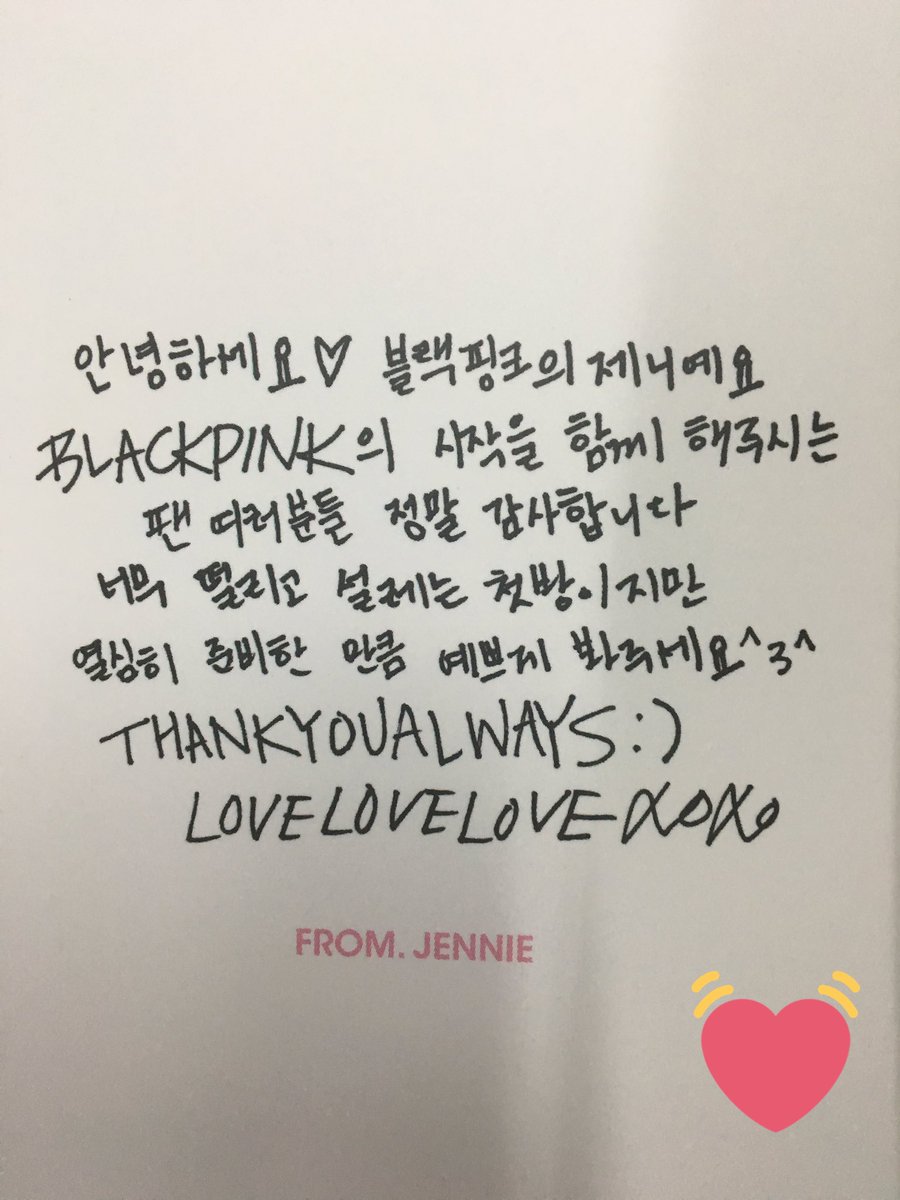 안녕하세요♡ 블랙핑크의 제니예요
BLACKPINK의 시작을 함께 해주시는
팬 여러분들 정말 감사합니다
너무 떨리고 설레는 첫방이지만
열심히 준비한 만큼 예쁘게 봐주세요^3^
THANKYOUALWAYS:)
LOVELOVELOVE XOXO
FROM. JENNIE